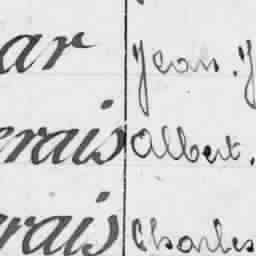 ar Jean. J
erais Albert.
rais Charles